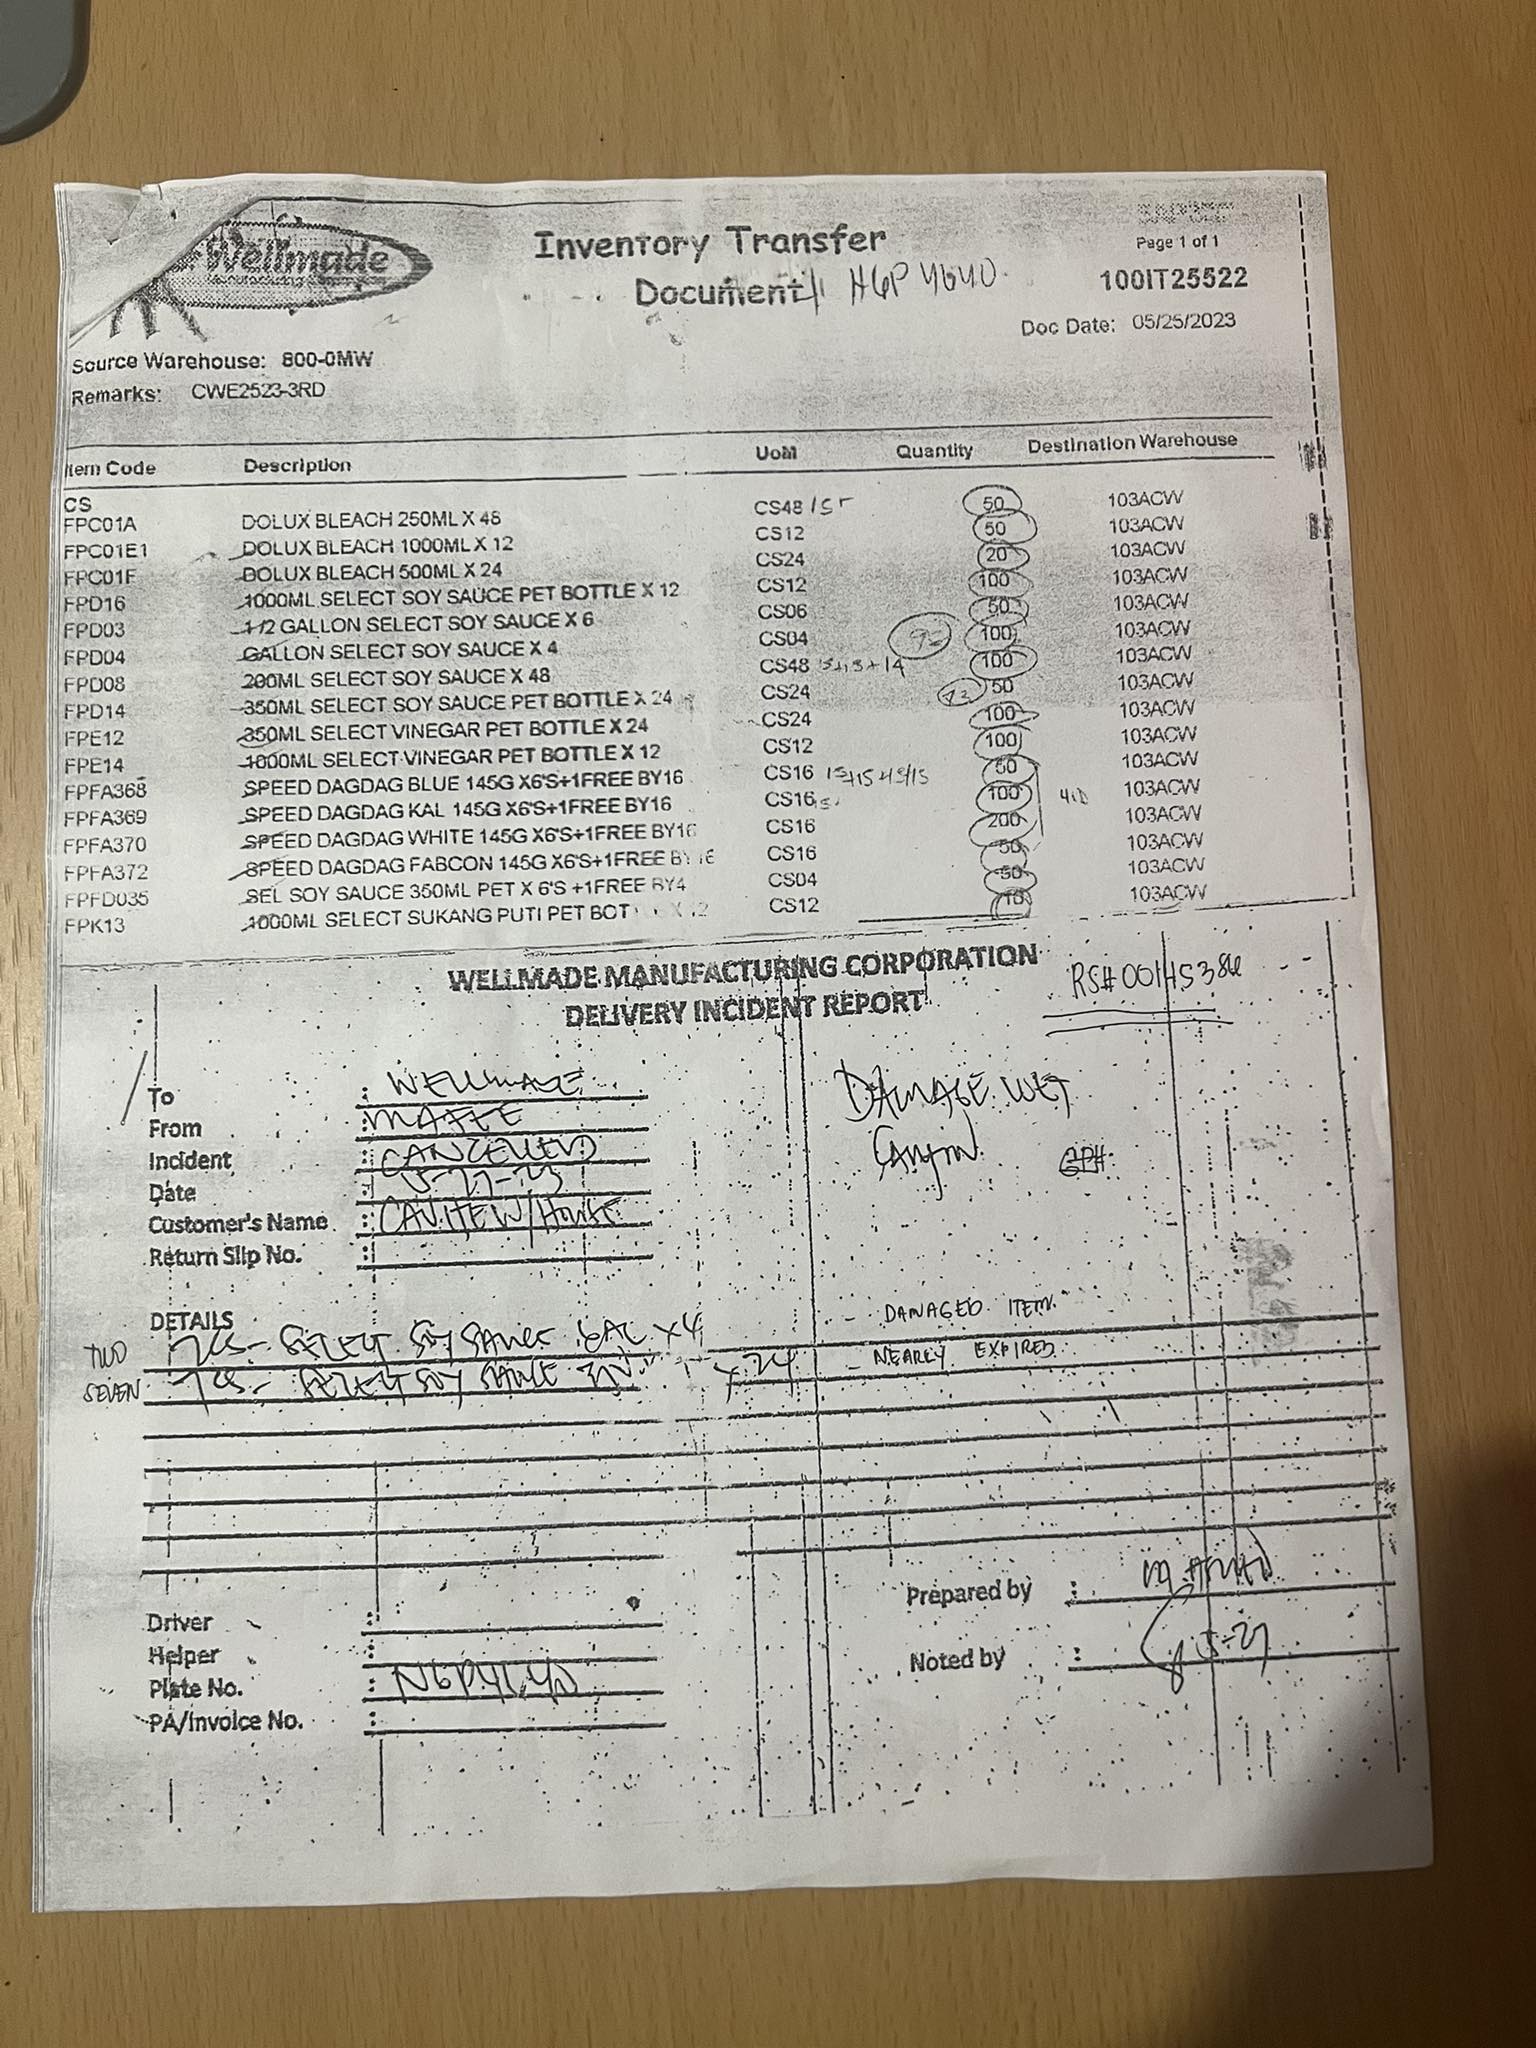 Wellmade
Inventory Transfer
Document
Page 1 of 1
100IT25522
Doc Date: 05/25/2023
Source Warehouse: 800-0MW
Remarks: CWE2523-3RD
Item Code Description UoM Quantity Destination Warehouse
CS
FPC01A DOLUX BLEACH 250ML X 48 CS48 50 103ACW
FPC01E1 DOLUX BLEACH 1000ML X 12 CS12 50 103ACW
FPC01F DOLUX BLEACH 500ML X 24 CS24 20 103ACW
FPD16 1000ML SELECT SOY SAUCE PET BOTTLE X 12 CS12 100 103ACW
FPD03 1/2 GALLON SELECT SOY SAUCE X 6 CS06 50 103ACW
FPD04 GALLON SELECT SOY SAUCE X 4 CS04 100 103ACW
FPD08 200ML SELECT SOY SAUCE X 48 CS48 100 103ACW
FPD14 350ML SELECT SOY SAUCE PET BOTTLE X 24 CS24 50 103ACW
FPE12 350ML SELECT VINEGAR PET BOTTLE X 24 CS24 100 103ACW
FPE14 1000ML SELECT VINEGAR PET BOTTLE X 12 CS12 100 103ACW
FPFA368 SPEED DAGDAG BLUE 145G X6'S+1FREE BY16 CS16 50 103ACW
FPFA369 SPEED DAGDAG KAL 145G X6'S+1FREE BY16 CS16 100 103ACW
FPFA370 SPEED DAGDAG WHITE 145G X6'S+1FREE BY16 CS16 200 103ACW
FPFA372 SPEED DAGDAG FABCON 145G X6'S+1FREE BY16 CS16 50 103ACW
FPFD035 SEL SOY SAUCE 350ML PET X 6'S +1FREE BY4 CS04 50 103ACW
FPK13 1000ML SELECT SUKANG PUTI PET BOT X 12 CS12 10 103ACW
WELLMADE MANUFACTURING CORPORATION
DELIVERY INCIDENT REPORT
To : WELLMADE
From :
Incident : CANCELLED
Date : 5-27-23
Customer's Name : CAVITE W/HOUSE
Return Slip No. :
DAMAGE WET
DETAILS
TWO 2CS - SELECT SOY SAUCE GAL X4 - DAMAGED ITEM
SEVEN 7CS - SELECT SOY SAUCE X 24 - NEARLY EXPIRED
Driver :
Helper :
Plate No. :
PA/Invoice No. :
Prepared by :
Noted by : 5-27